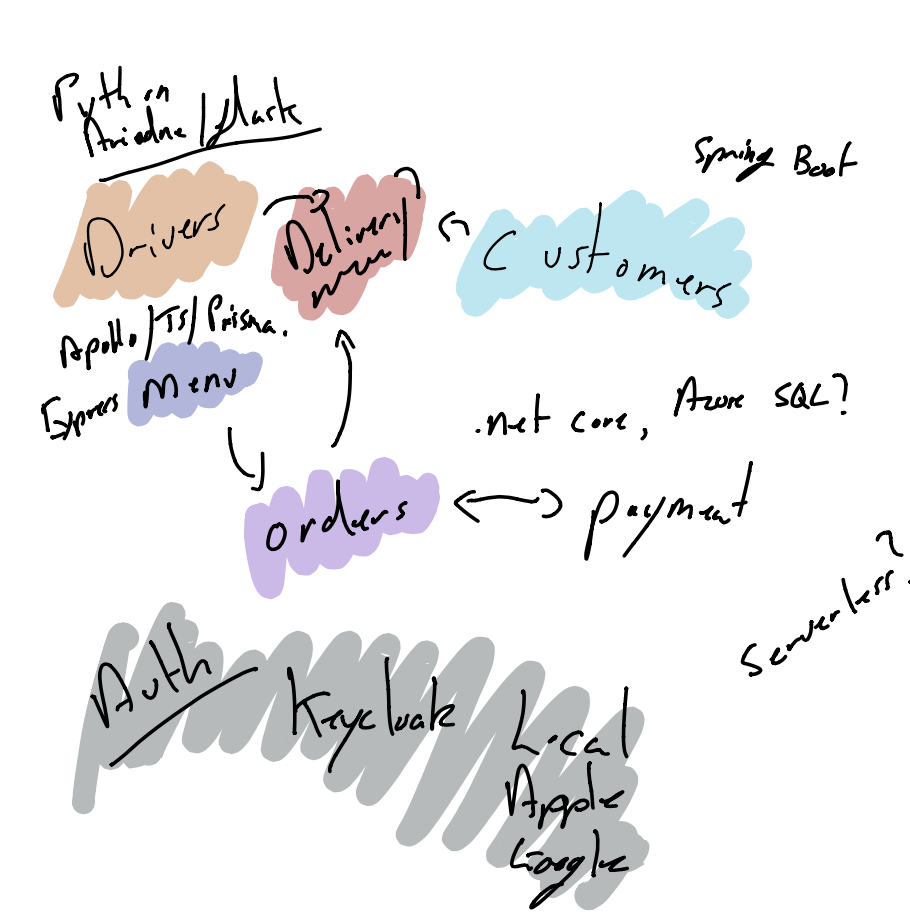 Python
Ariadne/flask
Spring Boot
Drivers
Delivery
Customers
Apollo/TS/Prisma.
Express
Menu
.net core, Azure SQL?
orders
payment
Serverless?
Auth
Keycloak
Local
Apple
Google